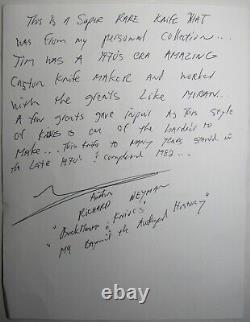 This is a Super Rare Knife that
was from my personal collection...
Tim was a 1970's era AMAZING
Custom Knife Maker and worked
with the greats Like
A few greats gave input as this style
of is one of the hardest to
Make... This knife to many years started in
the Late 1970's & completed 1982...
Author
RICHARD NEYMAN
"
& Knives"
"M9 Bayonet the Autopsy History"
hembra.com